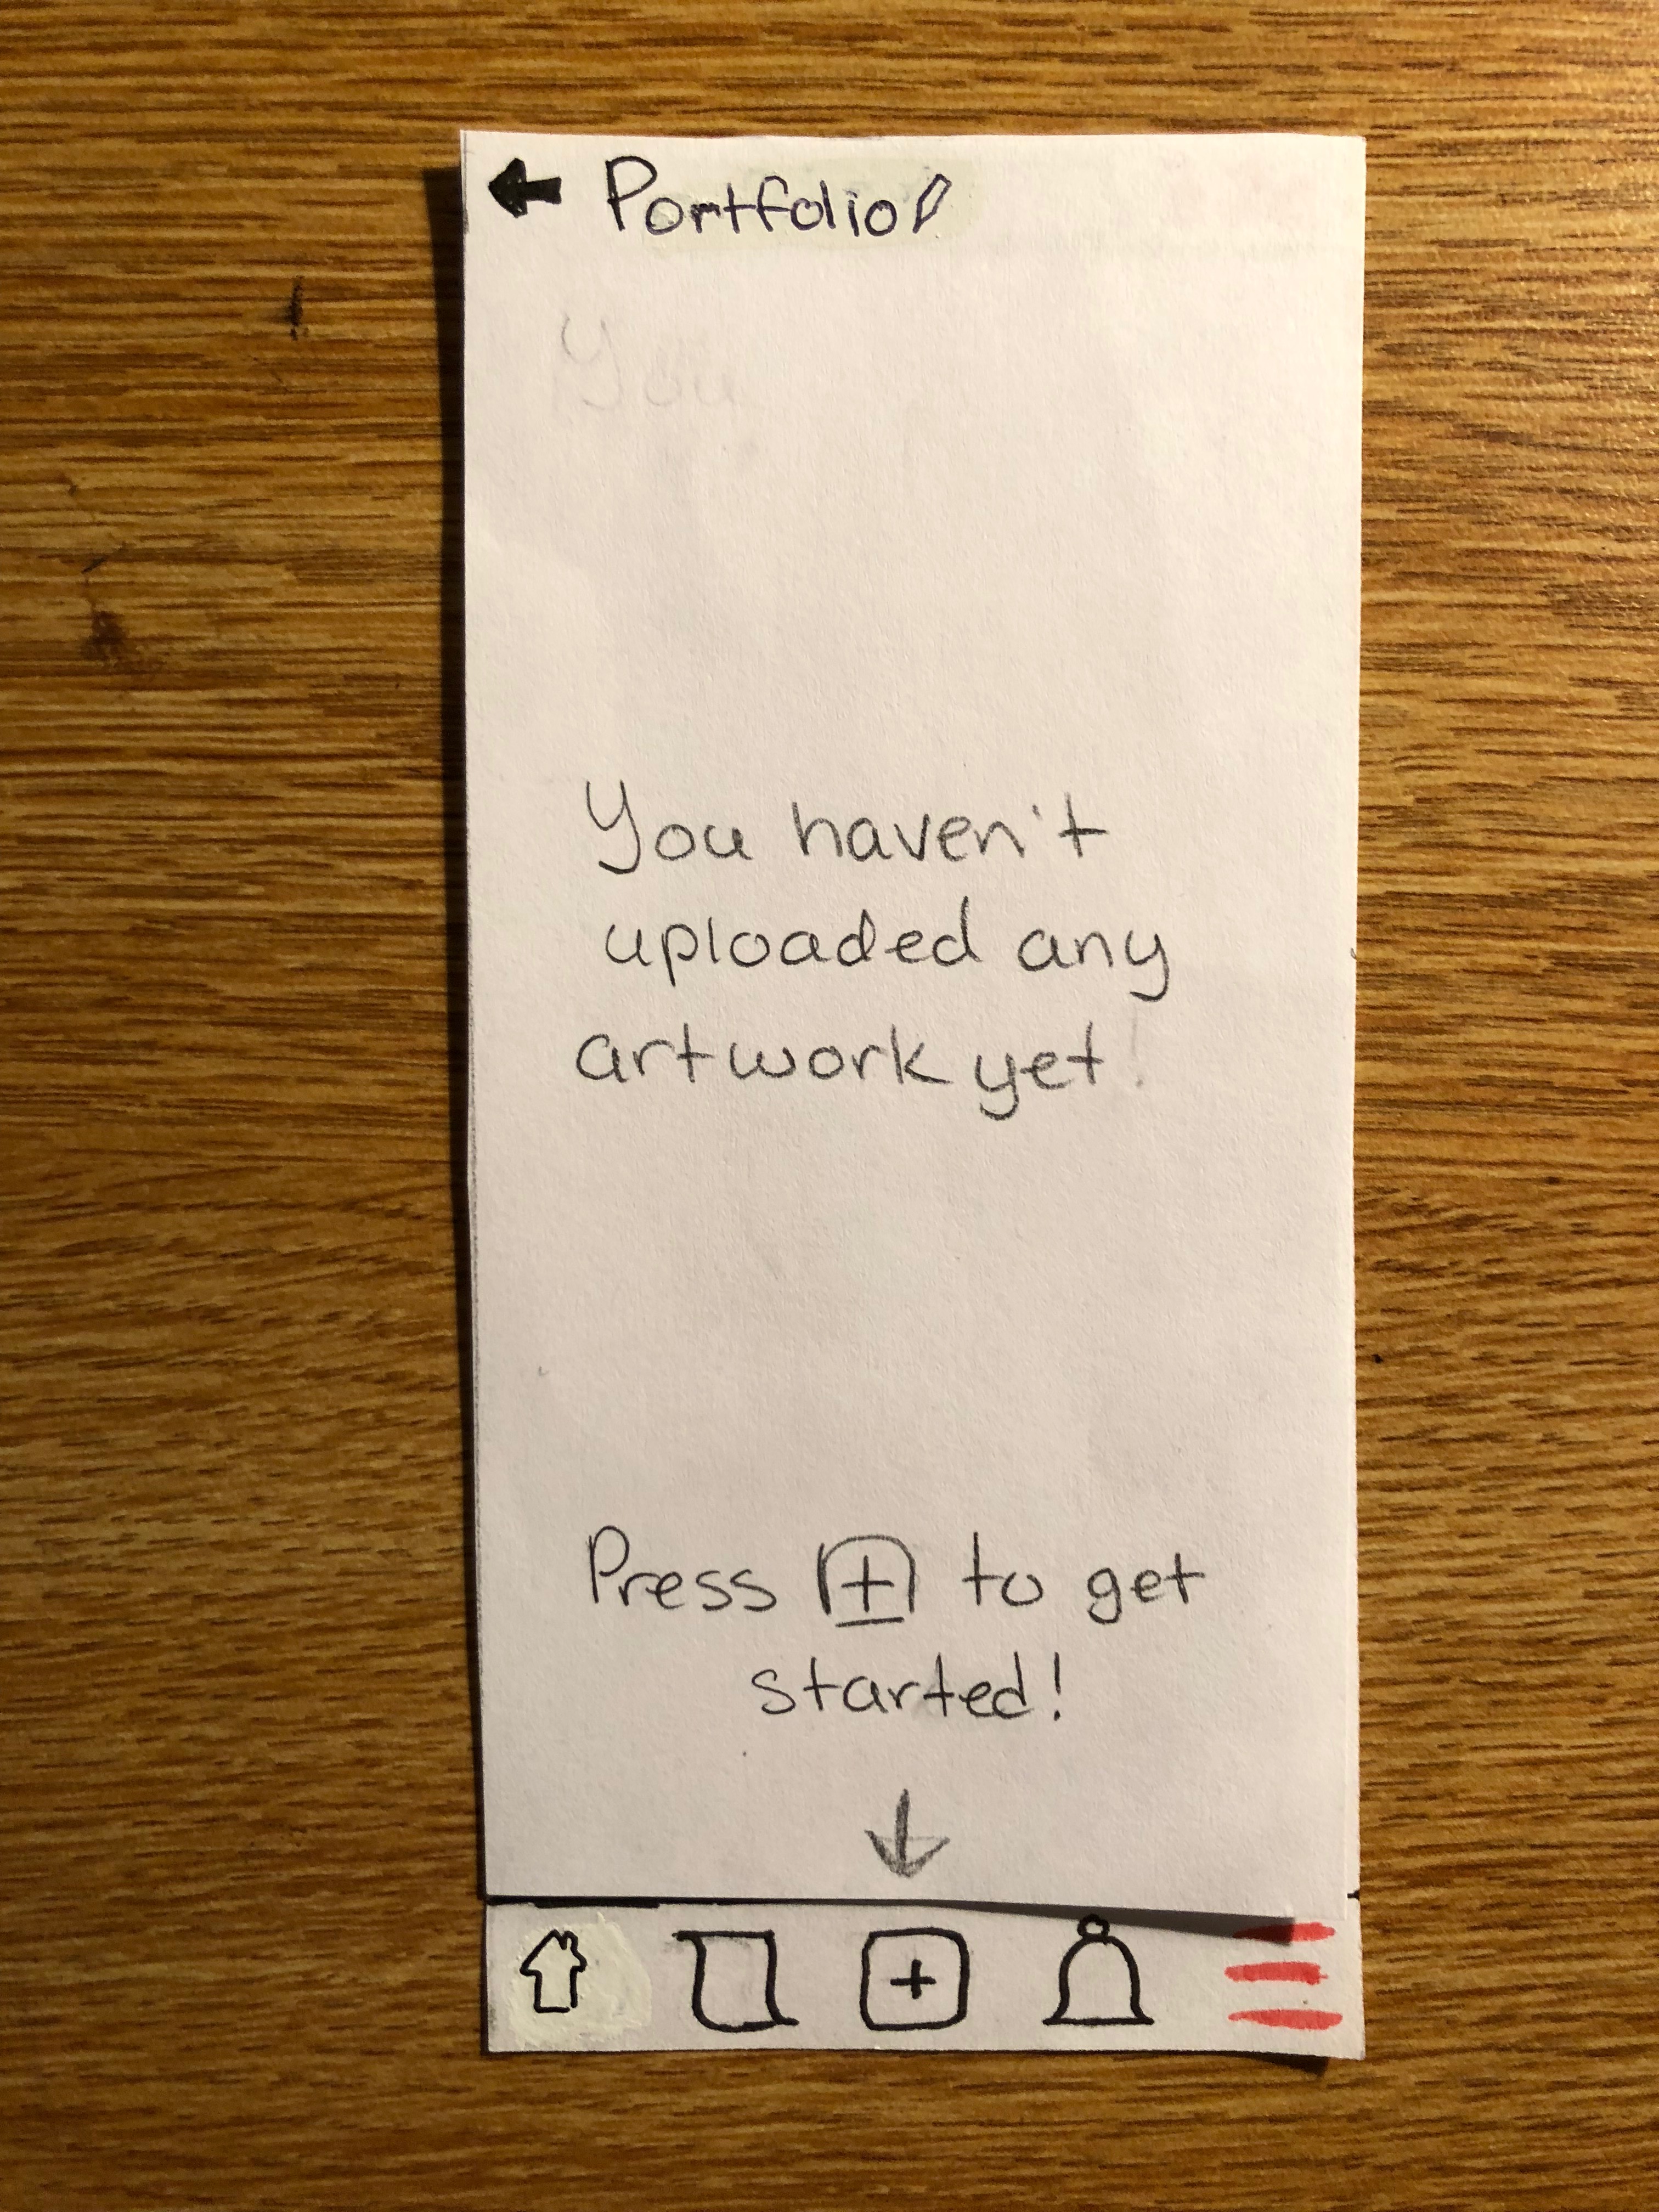 Portfolio
You
You haven't
uploaded any
artwork yet!
Press + to get
started!
+